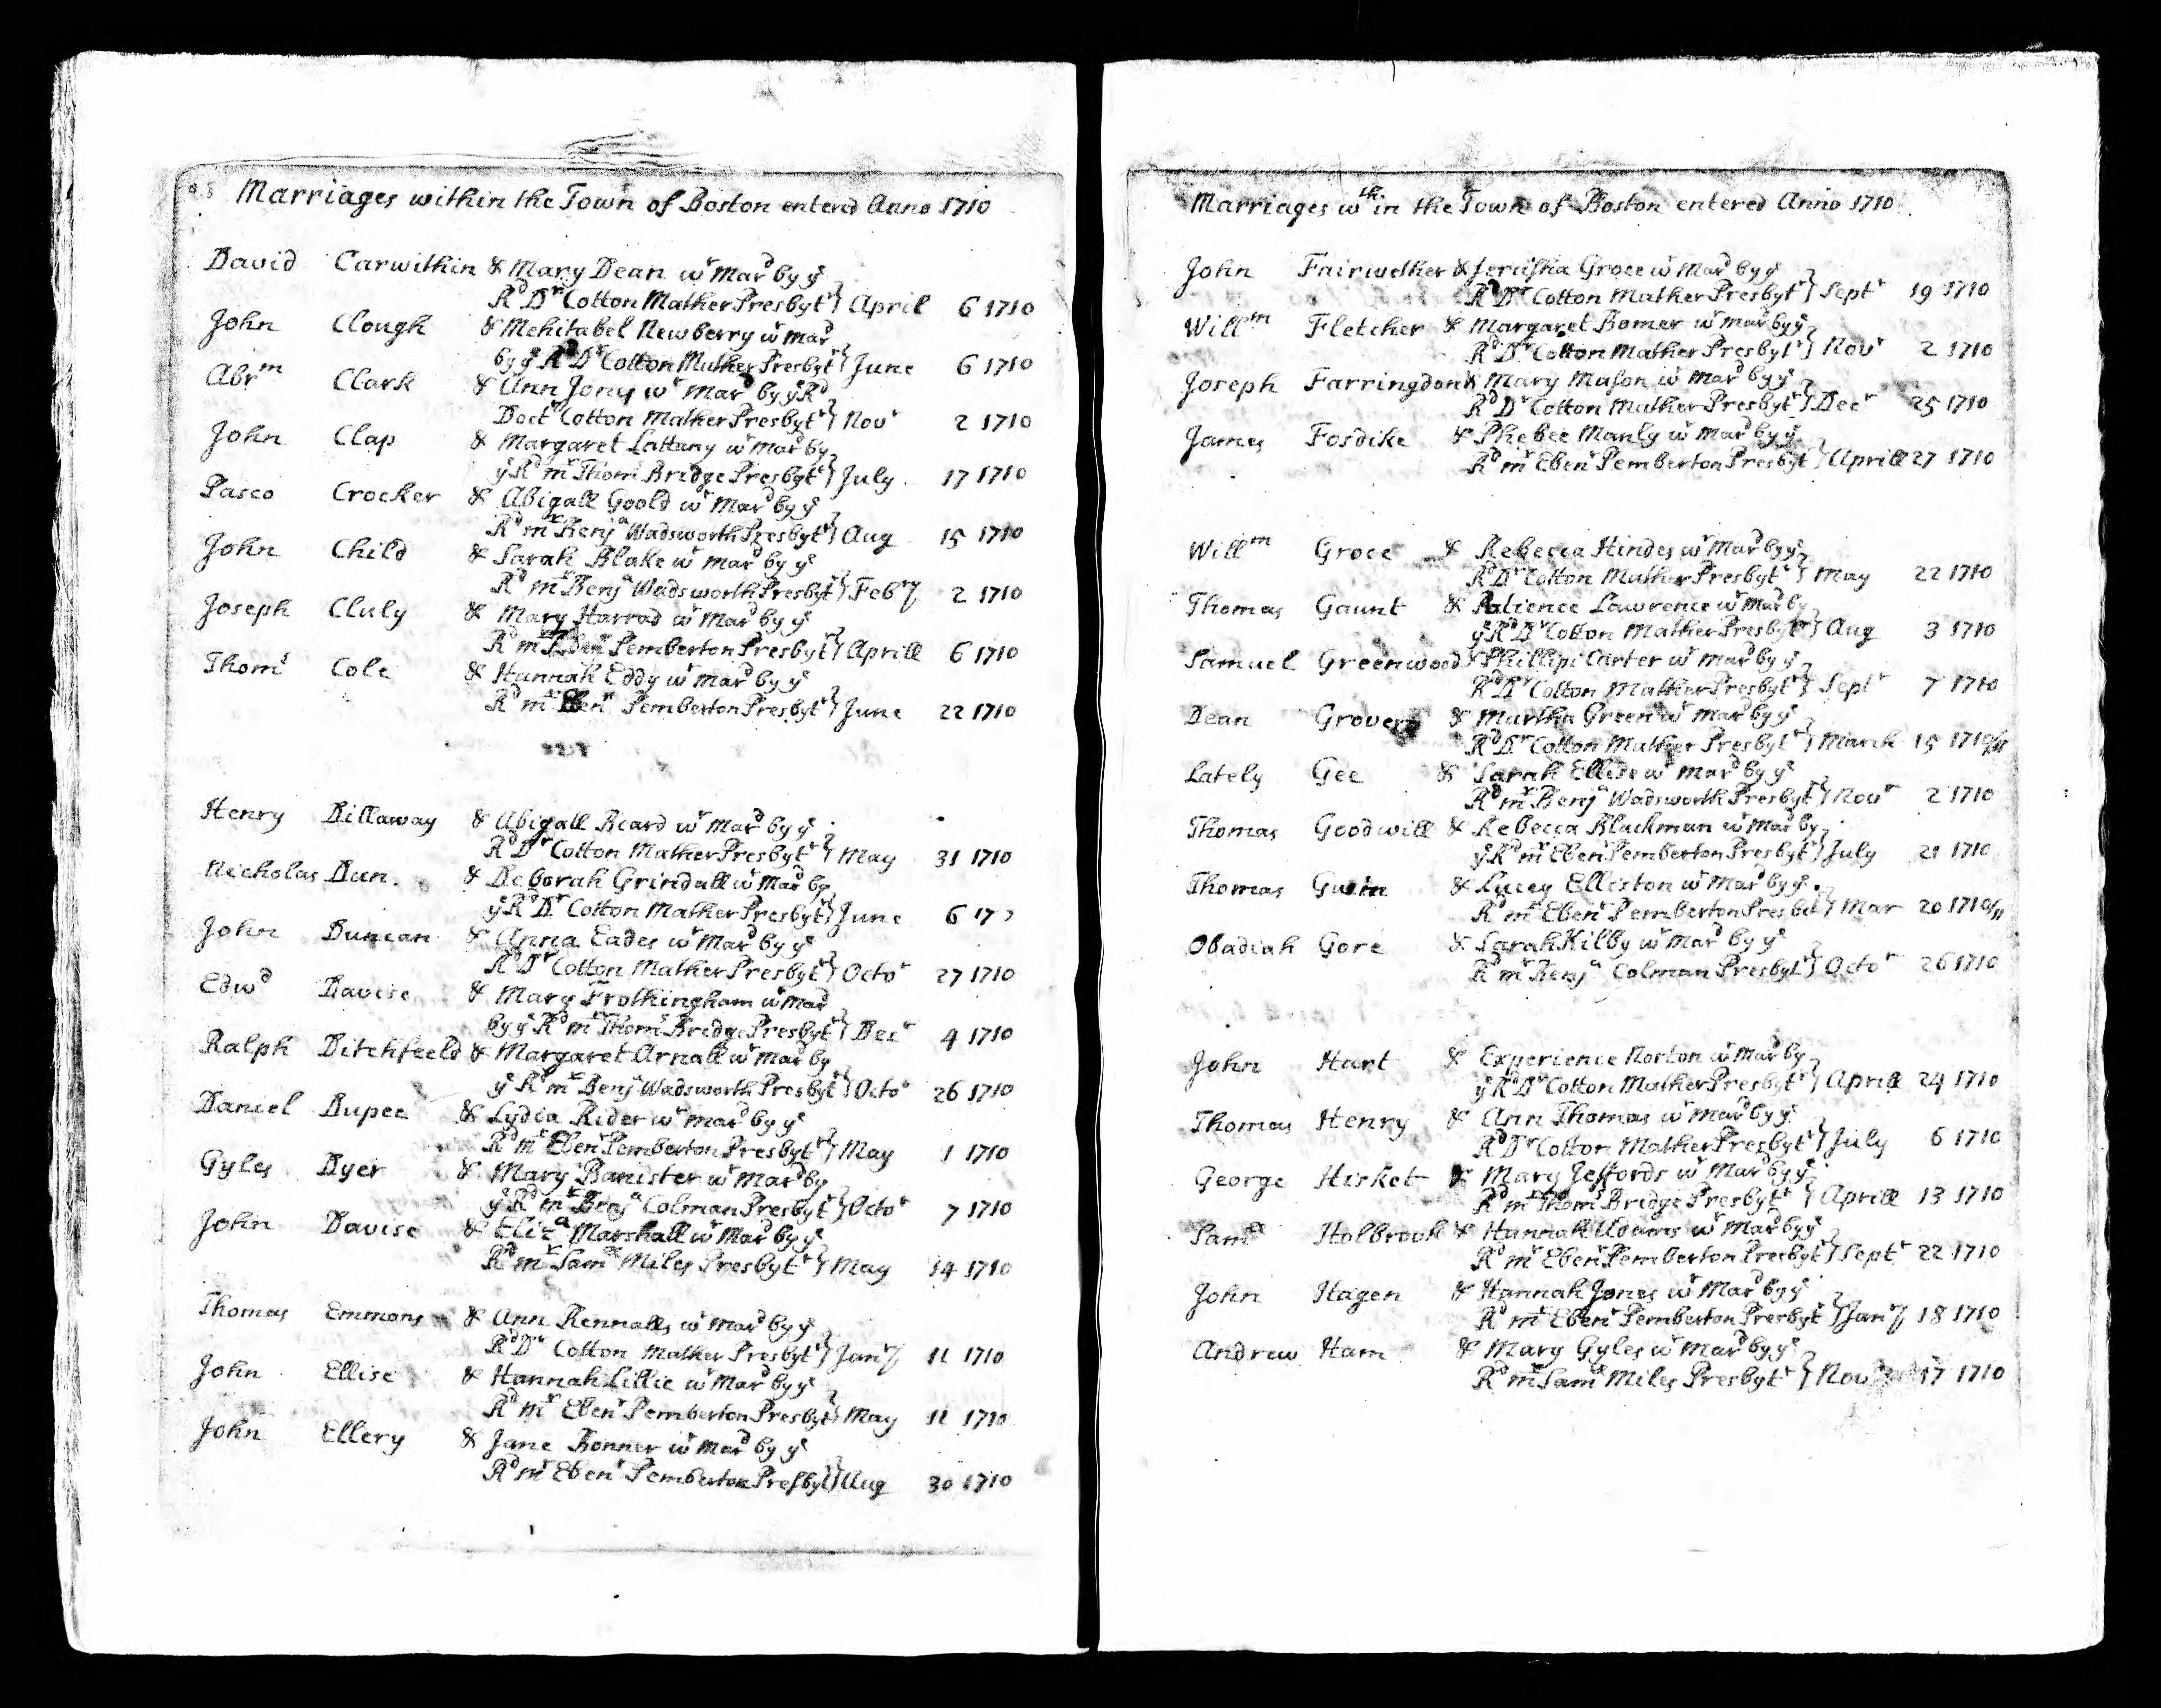 98 Marriages within the Town of Boston entered Anno 1710
David Carwithin & Mary Dean wr Mard by ye
Rd Dr Cotton Mather Presbytr} April 6 1710
John Clough & Mehitabel Newberry wr Mard
by ye Rd Dr Cotton Mather Presbytr} June 6 1710
Abrm Clark & Ann Jones wr Mard by ye Rd
Doctr Cotton Mather Presbytr} Novr 2 1710
John Clap & Margaret Lattany wr Mard by
ye Rd mr Thoms Bridge Presbytr} July 17 1710
Pasco Crocker & Abigall Goold wr Mard by ye
Rd mr Benja Wadsworth Presbytr} Aug 15 1710
John Child & Sarah Blake wr mard by ye
Rd mr Benja Wadsworth Presbytr} Febry 2 1710
Joseph Cluly & Mary Harrod wr Mard by ye
Rd mr Ebenr Pemberton Presbytr} Aprill 6 1710
Thoms Cole & Hannah Eddy wr Mard by ye
Rd mr Ebenr Pemberton Presbytr} June 22 1710
Henry Dillaway & Abigall Beard wr Mard by ye
Rd Dr Cotton Mather Presbytr} May 31 1710
Nicholas Dun & Deborah Grindall wr Mard by
ye Rd Dr Cotton Mather Presbytr} June 6 17
John Duncan & Anna Eades wr Mard by ye
Rd Dr Cotton Mather Presbytr} Octor 27 1710
Edwd Davise & Mary Frothingham wr Mard
by ye Rd mr Thoms Bridge Presbytr} Decr 4 1710
Ralph Ditchfeeld & Margaret Arnall wr Mard by
ye Rd mr Benja Wadsworth Presbytr} Octor 26 1710
Daniel Dupee & Lydia Rider wr mard by ye
Rd mr Ebenr Pemberton Presbytr} May 1 1710
Gyles Dyer & Mary Banister wr Mard by
ye Rd mr Benja Colman Presbytr} Octor 7 1710
John Davise & Eliza Marshall wr Mard by ye
Rd mr Samll Miles Presbytr} May 14 1710
Thomas Emmons & Ann Rennalls wr Mard by ye
Rd Dr Cotton Mather Presbytr} Janry 11 1710
John Ellise & Hannah Lillie wr Mard by ye
Rd mr Ebenr Pemberton Presbytr} May 11 1710
John Ellery & Jane Bonner wr Mard by ye
Rd mr Ebenr Pemberton Presbytr} Aug 30 1710
Marriages wth.in the Town of Boston entered Anno 1710
John Fairwether & Jerusha Groce wr Mard by ye
Rd Dr Cotton Mather Presbytr} Septr 19 1710
Willm Fletcher & Margaret Bomer wr Mard by ye
Rd Dr Cotton Mather Presbytr} Novr 2 1710
Joseph Farringdon & Mary Mason wr Mard by ye
Rd Dr Cotton Mather Presbytr} Decr 25 1710
James Fosdike & Phebee Manly wr Mard by ye
Rd mr Ebenr Pemberton Presbytr} Aprill 27 1710
Willm Groce & Rebecca Hindes wr Mard by ye
Rd Dr Cotton Mather Presbytr} May 22 1710
Thomas Gaunt & Patience Lawrence wr Mard by
ye Rd Dr Cotton Mather Presbytr} Aug 3 1710
Samuel Greenwood & Phillipi Carter wr Mard by ye
Rd Dr Cotton Mather Presbytr} Septr 7 1710
Dean Grover & Martha Green wr Mard by ye
Rd Dr Cotton Mather Presbytr} March 15 1710/11
Lately Gee & Sarah Ellise wr Mard by ye
Rd mr Benja Wadsworth Presbytr} Novr 2 1710
Thomas Goodwill & Rebecca Blackman wr Mard by
ye Rd mr Ebenr Pemberton Presbytr} July 21 1710
Thomas Gwin & Lucey Elliston wr Mard by ye
Rd mr Ebenr Pemberton Presbytr} Mar 20 1710/11
Obadiah Gore & Sarah Kilby wr Mard by ye
Rd mr Benja Colman Presbytr} Octor 26 1710
John Hart & Experience Norton wr Mard by
ye Rd Dr Cotton Mather Presbytr} Aprill 24 1710
Thomas Henry & Ann Thomas wr Mard by ye
Rd Dr Cotton Mather Presbytr} July 6 1710
George Hisket & Mary Jeffords wr Mard by ye
Rd mr Thoms Bridge Presbytr} Aprill 13 1710
Samll Holbrook & Hannah Adams wr Mard by ye
Rd mr Ebenr Pemberton Presbytr} Septr 22 1710
John Hagen & Hannah Jones wr Mard by ye
Rd mr Ebenr Pemberton Presbytr} Janry 18 1710
Andrew Ham & Mary Gyles wr Mard by ye
Rd mr Samll Miles Presbytr} Novr 17 1710